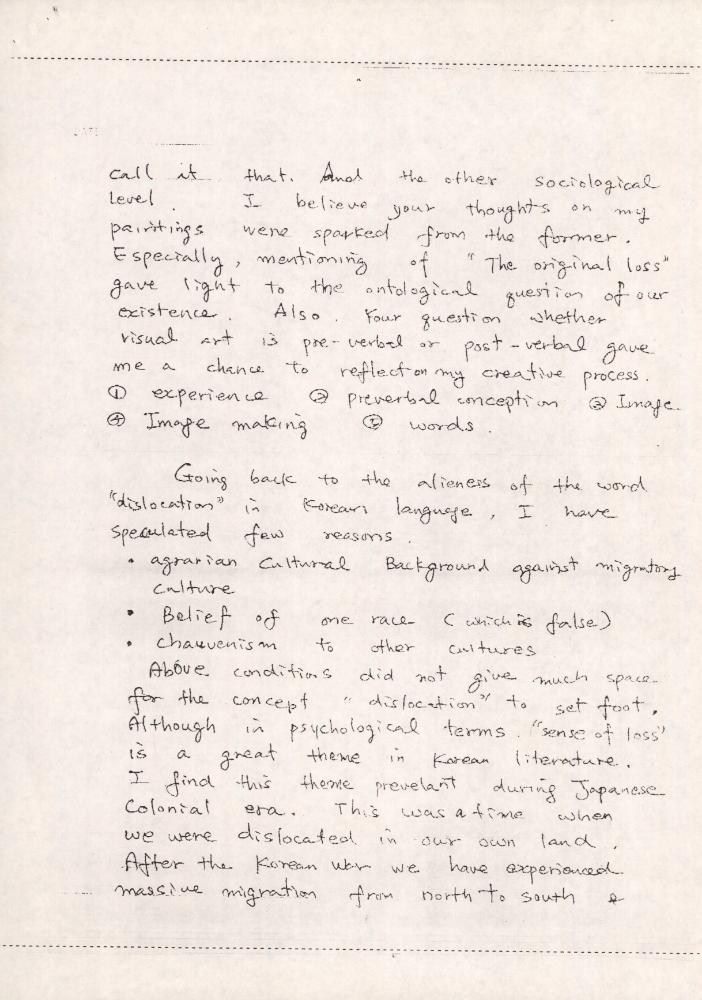 DATE
call it that. And the other sociological
level. I believe your thoughts on my
paintings were sparked from the former.
Especially, mentioning of "The original loss"
gave light to the ontological question of our
existence. Also. Your question whether
visual art is pre-verbal or post-verbal gave
me a chance to reflect on my creative process.
① experience ② preverbal conception ③ Image.
④ Image making ⑤ words.
Going back to the alieness of the word
"dislocation" in Korean language, I have
speculated few reasons.
• agrarian Cultural Background against migratory
culture
• Belief of one race (which is false)
• chauvenism to other cultures
Above conditions did not give much space
for the concept "dislocation" to set foot.
Although in psychological terms. "sense of loss"
is a great theme in Korean literature.
I find this theme prevelant during Japanese
Colonial era. This was a time when
we were dislocated in our own land.
After the Korean war we have experienced
massive migration from north to south &